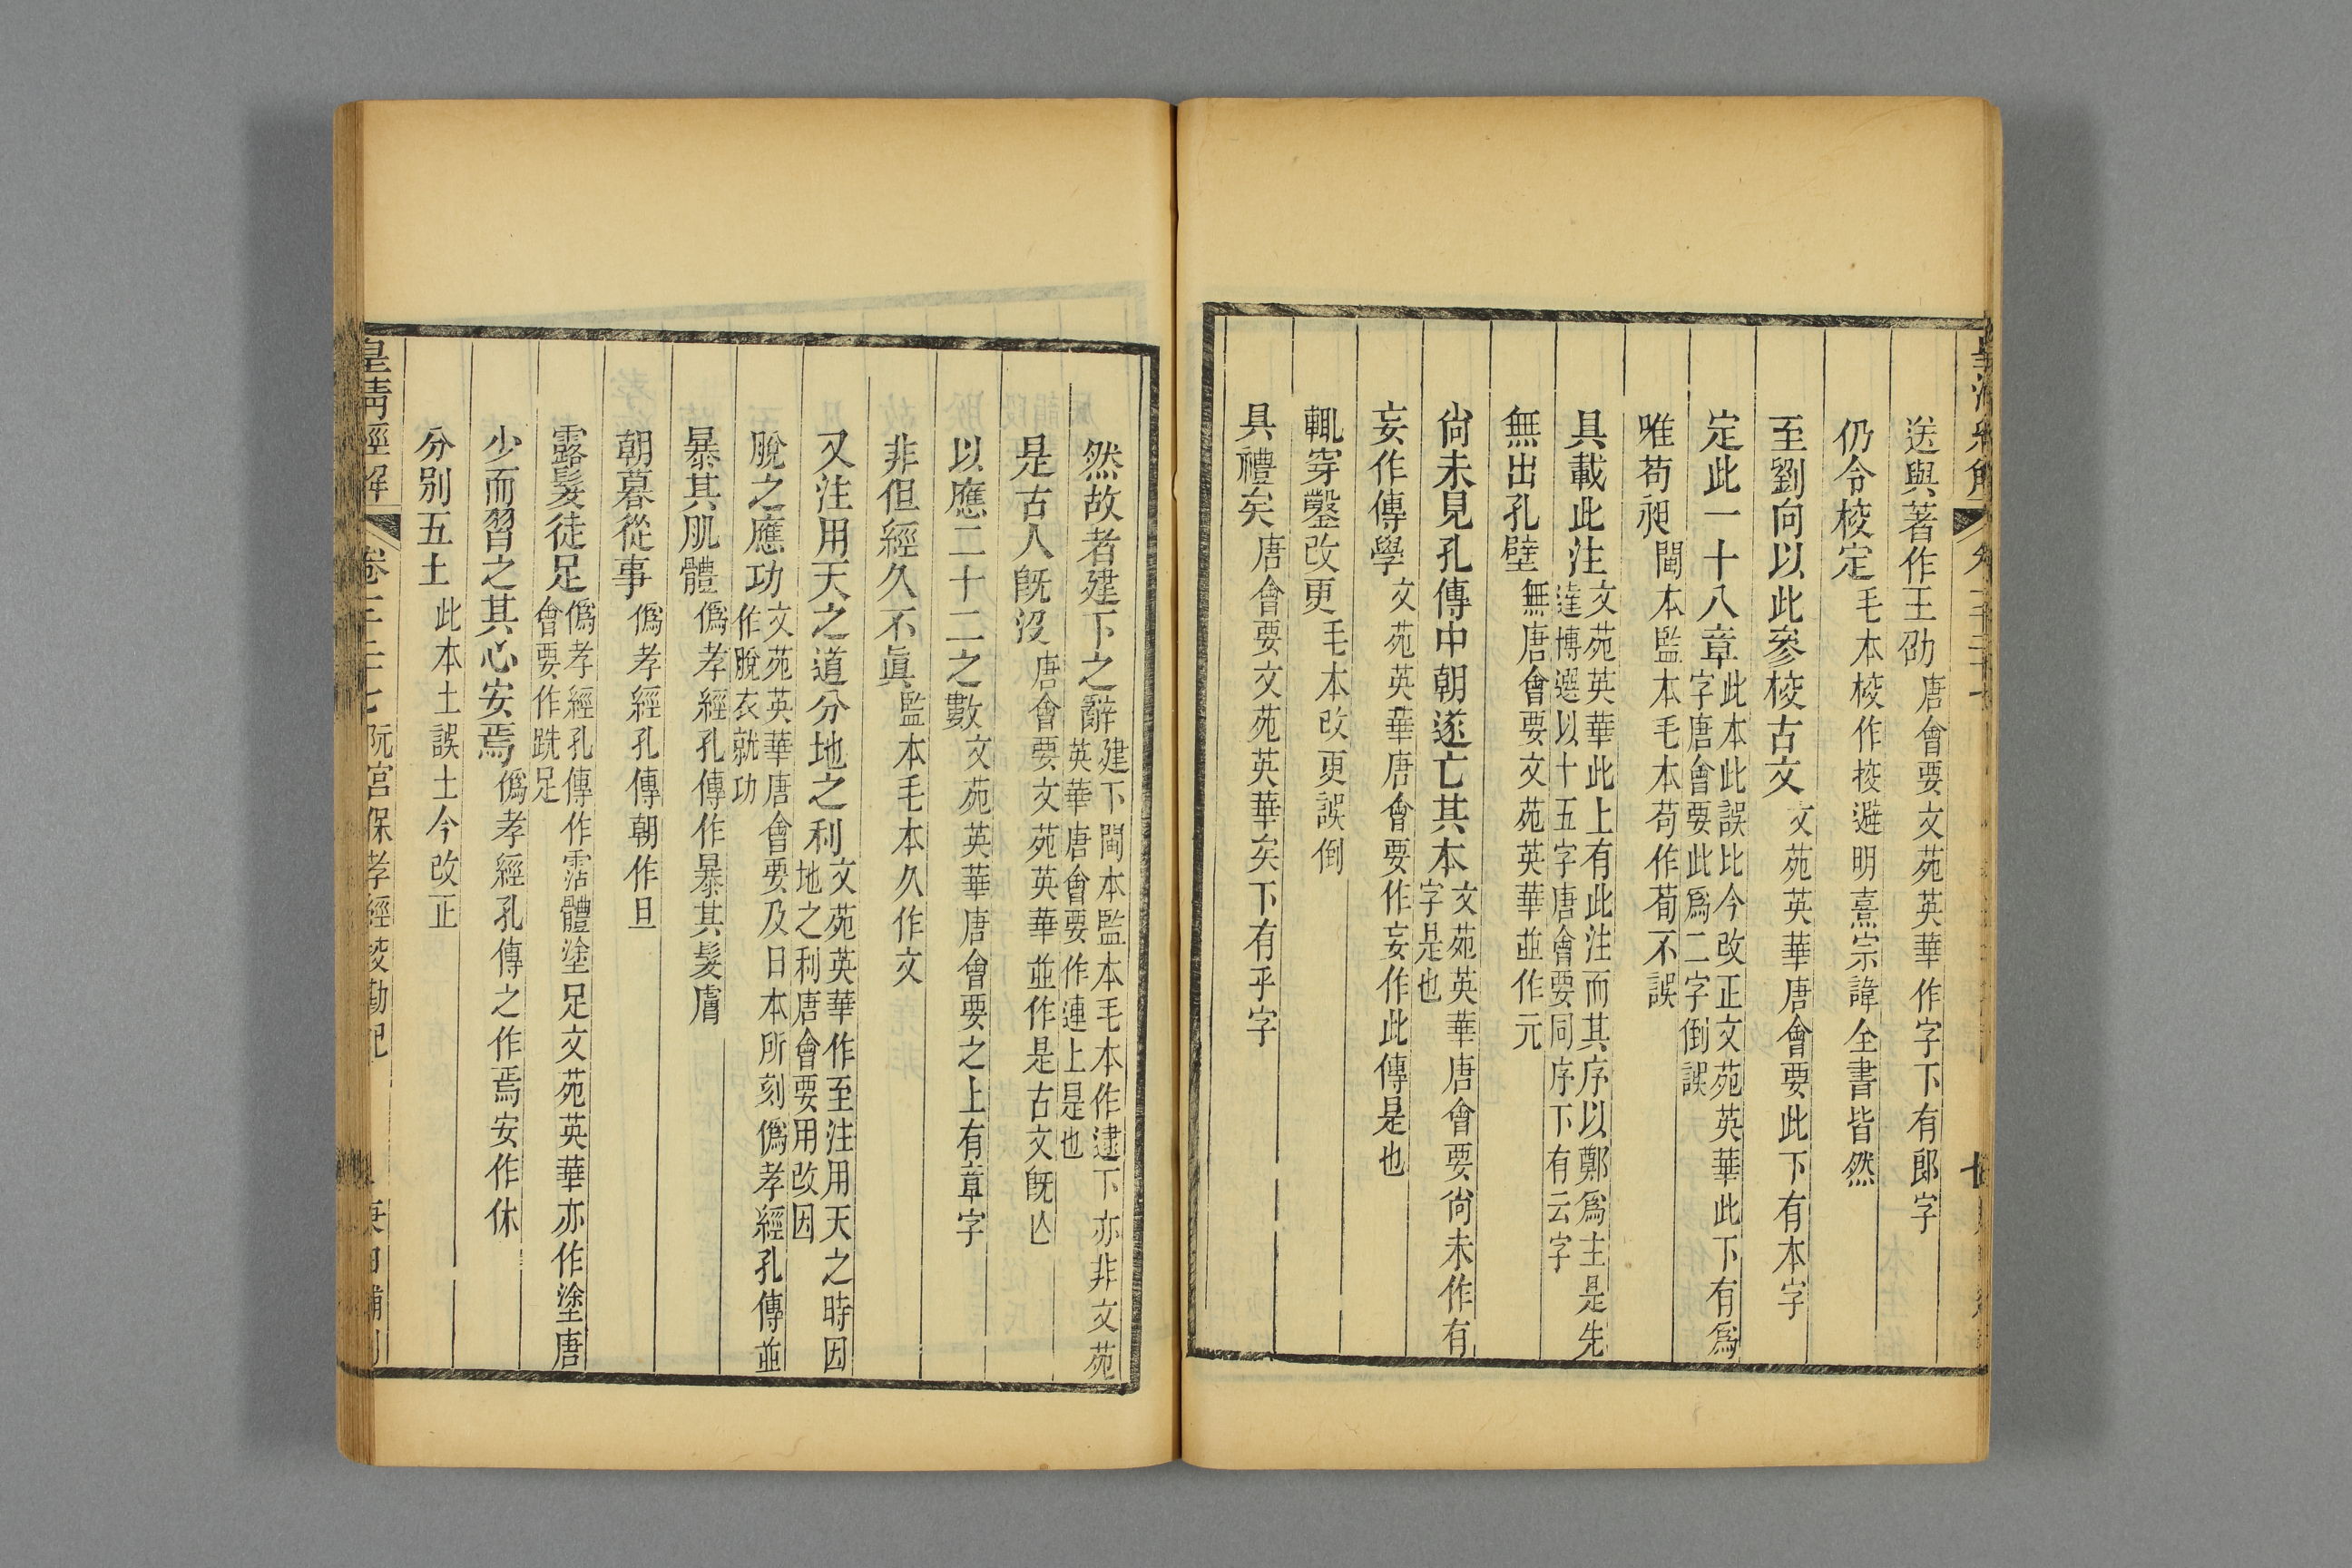 送與著作王劭唐會要文苑英華作字下有郎字
仍令校定毛本校作挍避明熹宗諱全書皆然
至劉向以此參校古文文苑英華唐會要此下有本字
定此一十八章此本此誤比今改正文苑英華此下有爲
字唐會要此爲二字倒誤
唯荀昶閩本監本毛本荀作荀不誤
具載此注文苑英華此上有此注而其序以鄭爲主是先
達博選以十五字唐會要同序下有云字
無出孔壁無唐會要文苑英華並作元
尙未見孔傳中朝遂亡其本文苑英華唐會要尙未作有
字是也
妄作傳學文苑英華唐會要作妄作此傳是也
輒穿鑿改更毛本改更誤倒
具禮矣唐會要文苑英華矣下有乎字
然故者建下之辭建下閩本監本毛本作逮下亦非文苑
英華唐會要作連上是也
是古人旣沒唐會要文苑英華並作是古文旣亾
以應二十二之數文苑英華唐會要之上有章字
非但經久不眞監本毛本久作文
又注用天之道分地之利文苑英華作至注用天之時因
地之利唐會要用改因
脫之應功文苑英華唐會要及日本所刻僞孝經孔傳並
作脫衣就功
暴其肌體僞孝經孔傳作暴其髮膚
朝暮從事僞孝經孔傳朝作旦
露髮徒足僞孝經孔傳作霑體塗足文苑英華亦作塗唐
會要作跣足
少而習之其心安焉僞孝經孔傳之作焉安作休
分別五土此本土誤土今改正
皇淸經解 卷 阮宮保孝經校勘記 庚申補刊